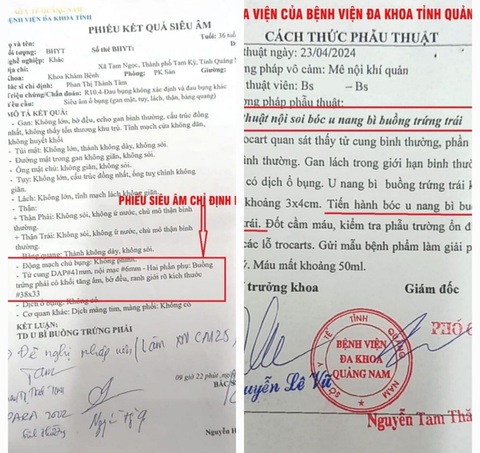 SỞ Y TẾ QUẢNG NAM
BỆNH VIỆN ĐA KHOA TỈNH
PHIẾU KẾT QUẢ SIÊU ÂM
ọ và tên:
Tuổi: 36 tuổi
ối tượng: BHYT
Số thẻ BHYT:
ghề nghiệp: Khác
Xã Tam Ngọc, Thành phố Tam Kỳ, Tỉnh Quảng
ịa chỉ:
Khoa: Khoa Khám Bệnh
Phòng: PK Sản
Giường:
ác sĩ chỉ định: Phan Thị Thành Tâm
Triệu chứng/Chẩn đoán: R10.4-Đau bụng không xác định và đau bụng khác
Yêu cầu: Siêu âm ổ bụng (gan mật, tụy, lách, thận, bàng quang)
MÔ TẢ KẾT QUẢ:
- Gan: Không lớn, bờ đều, echo gan bình thường, cấu trúc đồng
nhất, không thấy tổn thương khu trú. Tĩnh mạch cửa không dãn,
không huyết khối
- Túi mật: Không lớn, thành không dày, không sỏi.
- Đường mật trong gan không giãn, không sỏi.
- Ống mật chủ: không giãn, không sỏi.
- Tụy: Không lớn, cấu trúc đồng nhất, ống tuỵ chính không
giãn.
- Lách: Không lớn, tĩnh mạch lách không giãn.
- Thận:
+ Thận Phải: Không sỏi, không ứ nước, chủ mô thận bình
thường.
+ Thận Trái: Không sỏi, không ứ nước, chủ mô thận bình
thường.
PHIẾU SIÊU ÂM CHỈ ĐỊNH
- Bàng quang: Thành không dày, không sỏi.
- Động mạch chủ bụng: Không phình.
- Tử cung DAP#41mm, nội mạc #6mm - Hai phần phụ: Buồng
trứng phải có khối tăng âm, bờ đều, ranh giới rõ kích thước
#38x33
- Dịch ổ bụng: Không có.
- Cơ quan khác: Dịch màng tim, màng phổi: Không có
KẾT LUẬN:
TD U BÌ BUỒNG TRỨNG PHẢI
Đề nghị nhập viện / làm XN CA125
Tâm
09 giờ 22 phút, ngày
BÁC
PARA 2002
A VIỆN CỦA BỆNH VIỆN ĐA KHOA TỈNH QUẢNG
CÁCH THỨC PHẪU THUẬT
thuật ngày: 23/04/2024
ơng pháp vô cảm: Mê nội khí quản
thuật viên: Bs – Bs
ơng pháp phẫu thuật:
thuật nội soi bóc u nang bì buồng trứng trái
ocart quan sát thấy tử cung bình thường, phần
ình thường. Gan lách trong giới hạn bình thườ
có dịch ổ bụng. U nang bì buồng trứng trái k
khoảng 3x4cm. Tiến hành bóc u nang bì buồ
trái. Đốt cầm máu, kiểm tra phẫu trường ổn đ
các lỗ trocarts. Gửi mẫu bệnh phẩm làm giải p
ý. Máu mất khoảng 50ml.
trưởng khoa
Giám đốc
PHÓ G
BỆNH VIỆN
ĐA KHOA
QUẢNG NAM
guyễn Lê Vũ
Nguyễn Tam Thă